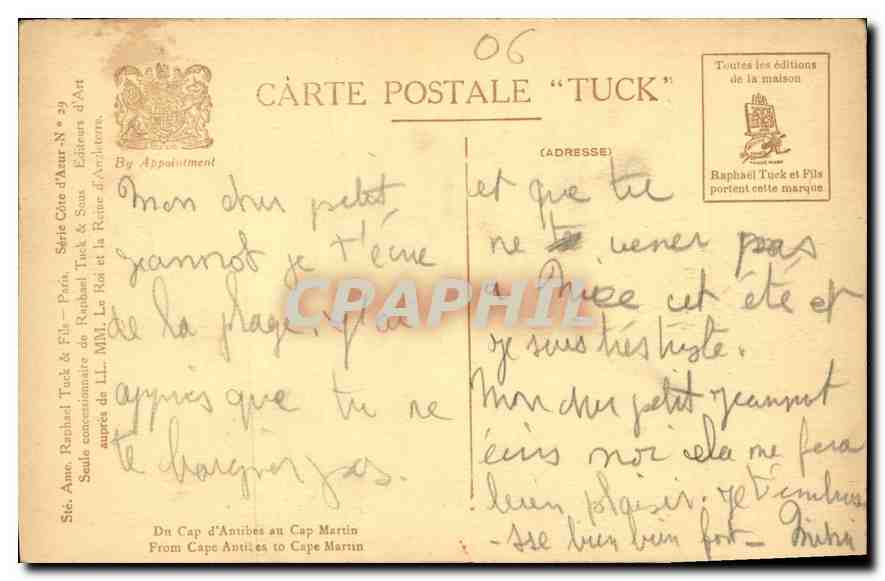 06
CARTE POSTALE "TUCK"
By Appointment
(ADRESSE)
Toutes les éditions
de la maison
TRADE MARK
Raphaël Tuck et Fils
portent cette marque
Sté. Ame. Raphael Tuck & Fils — Paris. Série Côte d'Azur - No 29
Seule concessionnaire de Raphael Tuck & Sons Editeurs d'Art
auprès de LL. MM. Le Roi et la Reine d'Angleterre.
Mon cher petit
Jeannot je t'écrie
de la plage. J'ai
appris que tu ne
te baignes pas.
et que tu
ne vener pas
a Nice cet été et
je suis très triste.
Mon cher petit Jeannot
écris moi cela me fera
bien plaisir. Je t'embras
-sse bien bien fort - Mimi
CPAPHIL
Du Cap d'Antibes au Cap Martin
From Cape Antibes to Cape Martin